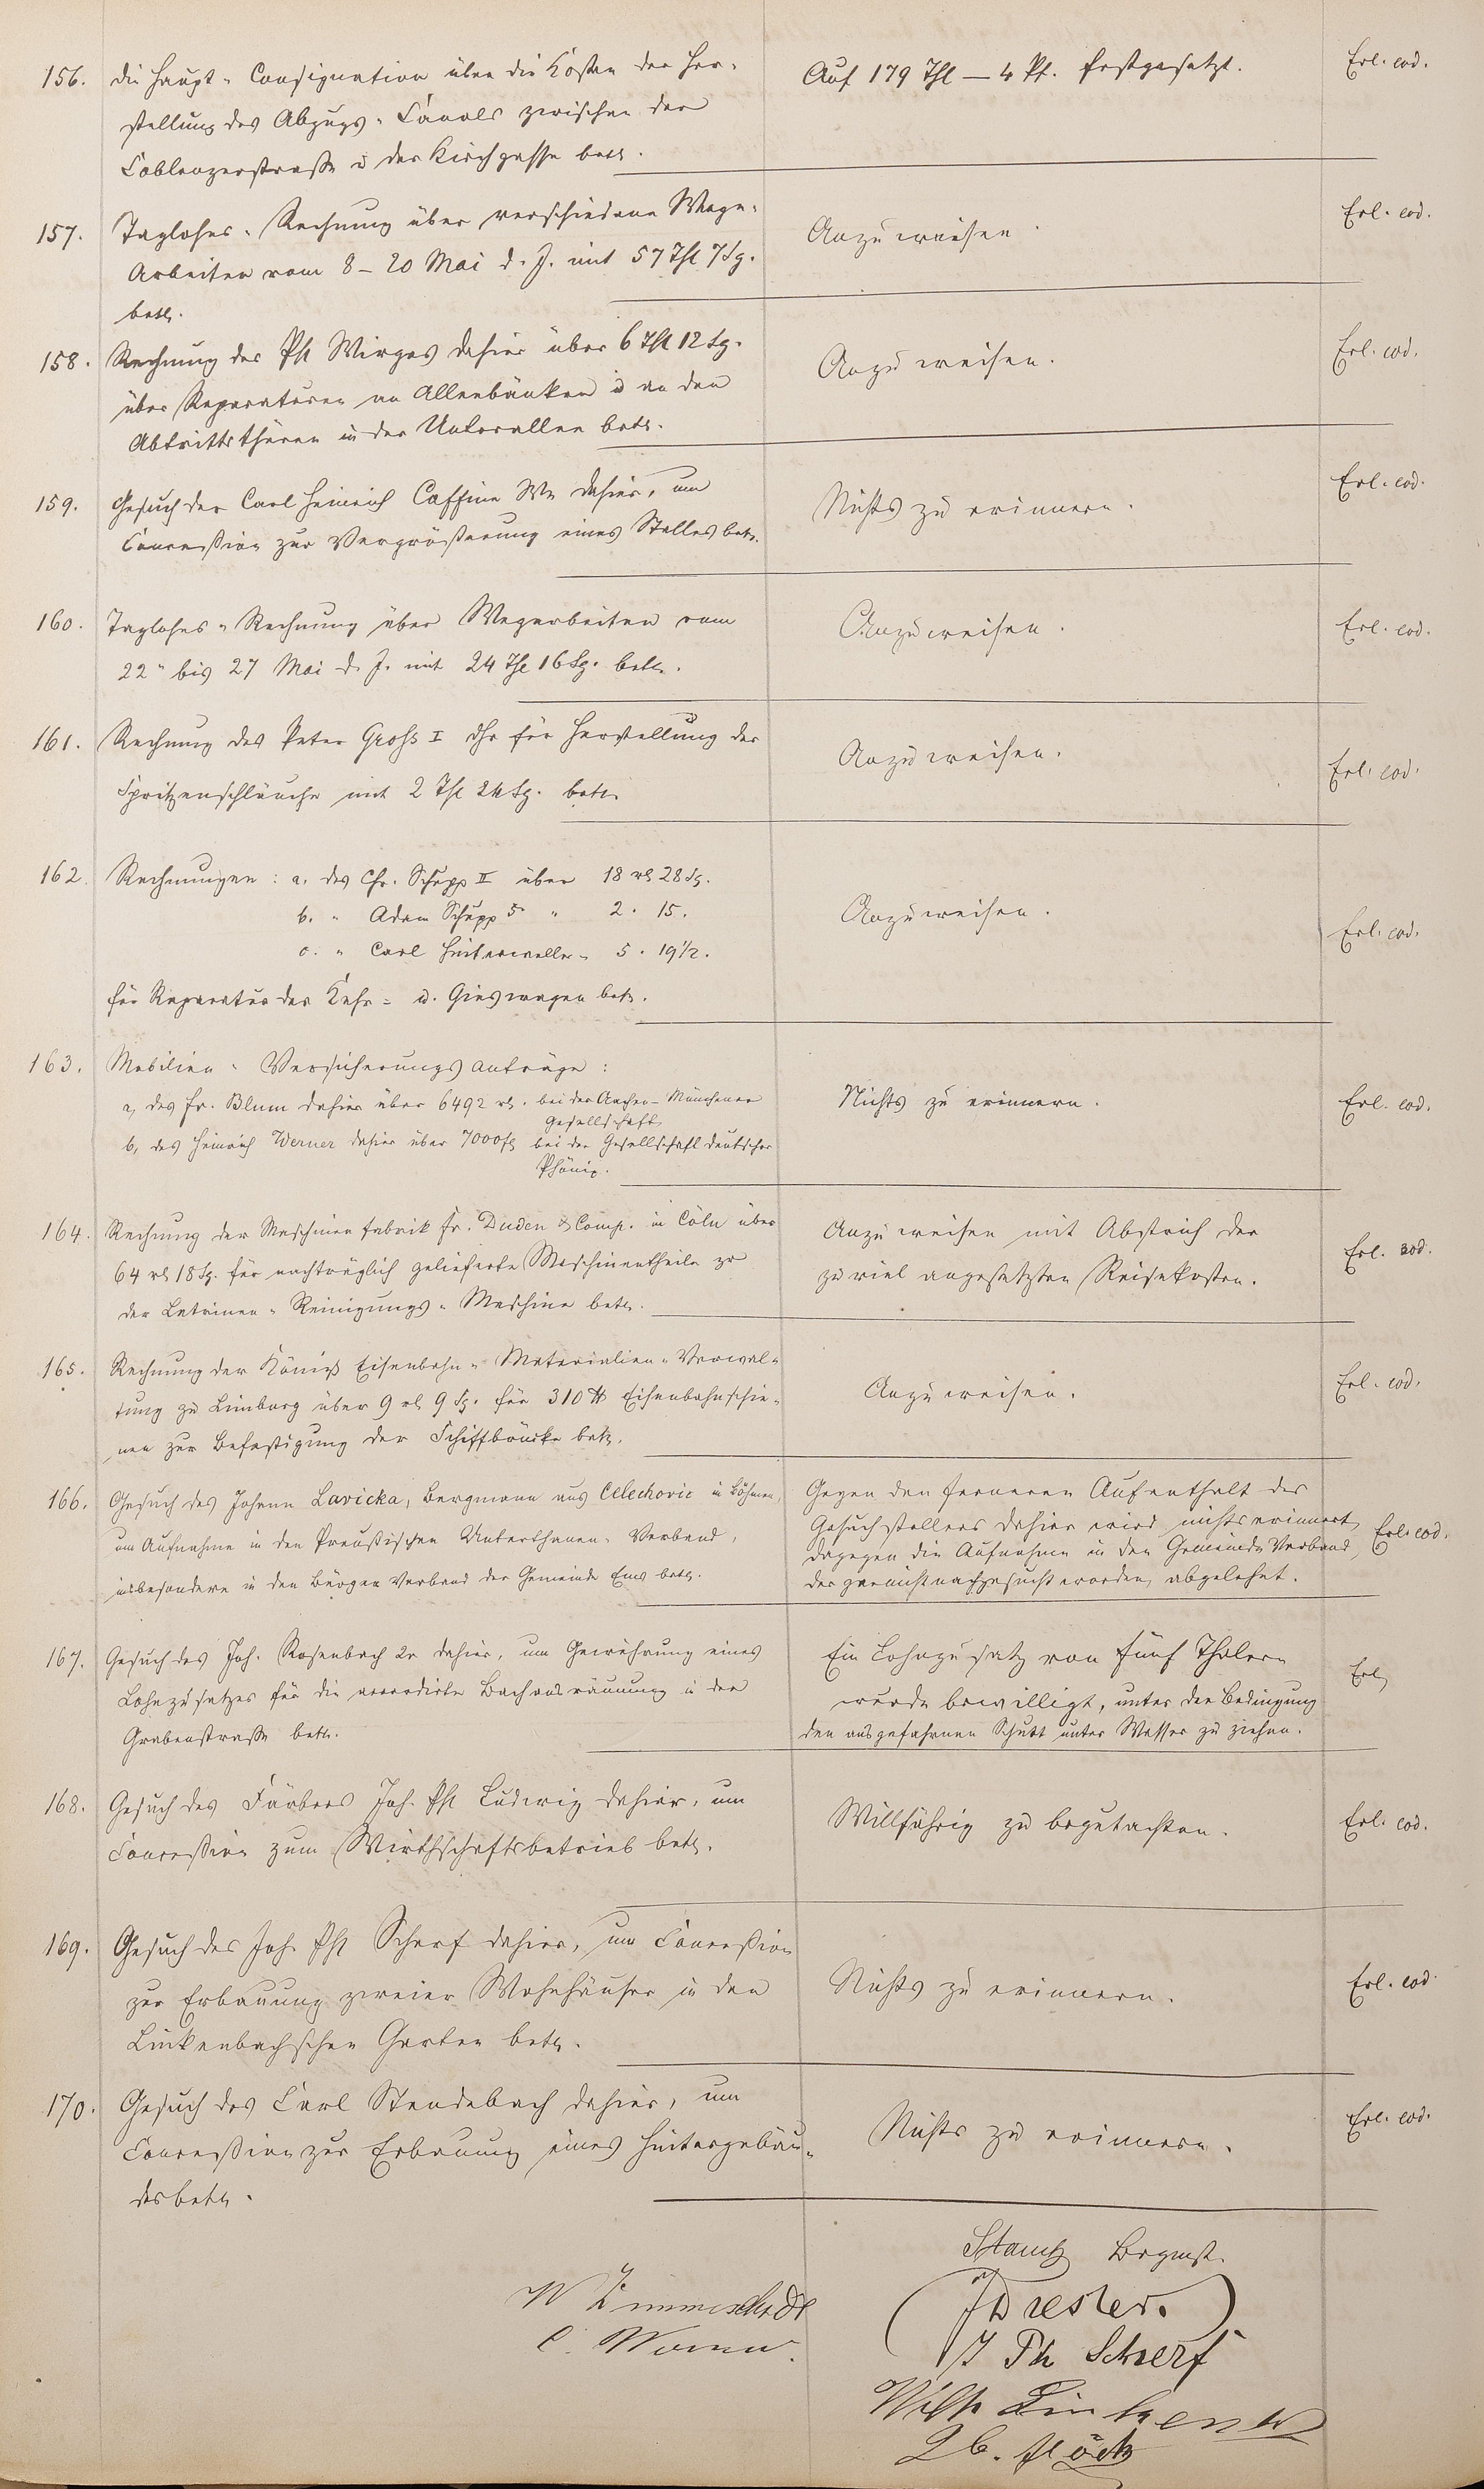 156. die Haupt-Consignation über die Kosten der Her-
stellung des Abzugs-Canals zwischen der
Coblenzerstraße u der Kirchgasse betr.
Auf 179 Thl — 4 Pf. festgesetzt.
Erl. eod.
157. Taglohns-Rechnung über verschiedene Wege-
Arbeiten vom 8 – 20 Mai d. J. mit 57 Thl 7 Sg.
betr.
Anzuweisen.
Erl. eod.
158. Rechnung des Ph Wirges dahier über 6 Thl 12 Sg.
über Reparaturen an Alleebänken u an den
Abtrittsthüren in der Unterallee betr.
Anzuweisen.
Erl. eod.
159. Gesuch der Carl Heinrich Caffine We dahier, um
Concession zur Vergrößerung eines Stalles betr.
Nichts zu erinnern.
Erl. eod.
160. Taglohns-Rechnung über Wegarbeiten vom
22" bis 27 Mai d. J. mit 24 Thl 16 Sg. betr.
Anzuweisen.
Erl. eod.
161. Rechnung des Peter Groß I dhr für Herstellung der
Spritzenschläuche mit 2 Thl 24 Sg. betr.
Anzuweisen.
Erl. eod.
162. Rechnungen: a. des Chr. Schupp II über 18 rl 28 Sg.
b. " Adam Schupp 5r " 2 . 15.
c. " Carl Hinterweller " 5 . 19½.
für Reparatur der Kehr- u. Gieswagen betr.
Anzuweisen.
Erl. eod.
163. Mobilien-Versicherungsanträge:
a, des Fr. Blum dahier über 6492 rl. bei der Aachen-Münchener
Gesellschaft
b, des Heinrich Werner dahier über 7000 fl bei der Gesellschaft deutscher
Phönix.
Nichts zu erinnern.
Erl. eod.
164. Rechnung der Maschinenfabrik Fr. Duden & Comp. in Cöln über
64 rl 18 Sg. für nachträglich gelieferte Maschinentheile zu
der Latrinen-Reinigungs-Maschine betr.
Anzuweisen mit Abstrich der
zu viel angesetzten Reisekosten.
Erl. eod.
165. Rechnung der Königl Eisenbahn-Materialien-Verwal-
tung zu Limburg über 9 rl 9 Sg. für 310 ℔ Eisenbahnschie-
nen zur Befestigung der Schiffbrücke betr.
Anzuweisen.
Erl. eod.
166. Gesuch des Johann Lavicka, Bergmann aus Celechovic in Böhmen,
um Aufnahme in den Preußischen Unterthanen-Verband,
insbesondere in den Bürger Verband der Gemeinde Ems betr.
Gegen den ferneren Aufenthalt des
Gesuchstellers dahier wird nichts erinnert,
dagegen die Aufnahme in den Gemeinde Verband,
der gar nicht nachgesucht worden, abgelehnt.
Erl. eod.
167. Gesuch des Joh. Rosenbach 2r dahier, um Gewährung eines
Lohnzusatzes für die accordirte Bachausräumung in der
Grabenstraße betr.
Ein Lohnzusatz von fünf Thalern
wurde bewilligt, unter der Bedingung
den ausgefahrnen Schutt unter Wasser zu ziehen.
Erl.
168. Gesuch des Färbers Joh. Ph Ludwig dahier, um
Concession zum Wirthschaftsbetrieb betr.
Willfährig zu begutachten.
Erl. eod.
169. Gesuch des Joh. Ph Scherf dahier, um Concession
zur Erbauung zweier Wohnhäuser in den
Linkenbachschen Garten betr.
Nichts zu erinnern.
Erl. eod.
170. Gesuch des Carl Stendebach dahier, um
Concession zur Erbauung eines Hintergebäu-
des betr.
Nichts zu erinnern.
Erl. eod.
Bugmst.
W Zimmerschidt
C. Werner.
J Dresler.
J Ph Scherf
Wilh Linkenb